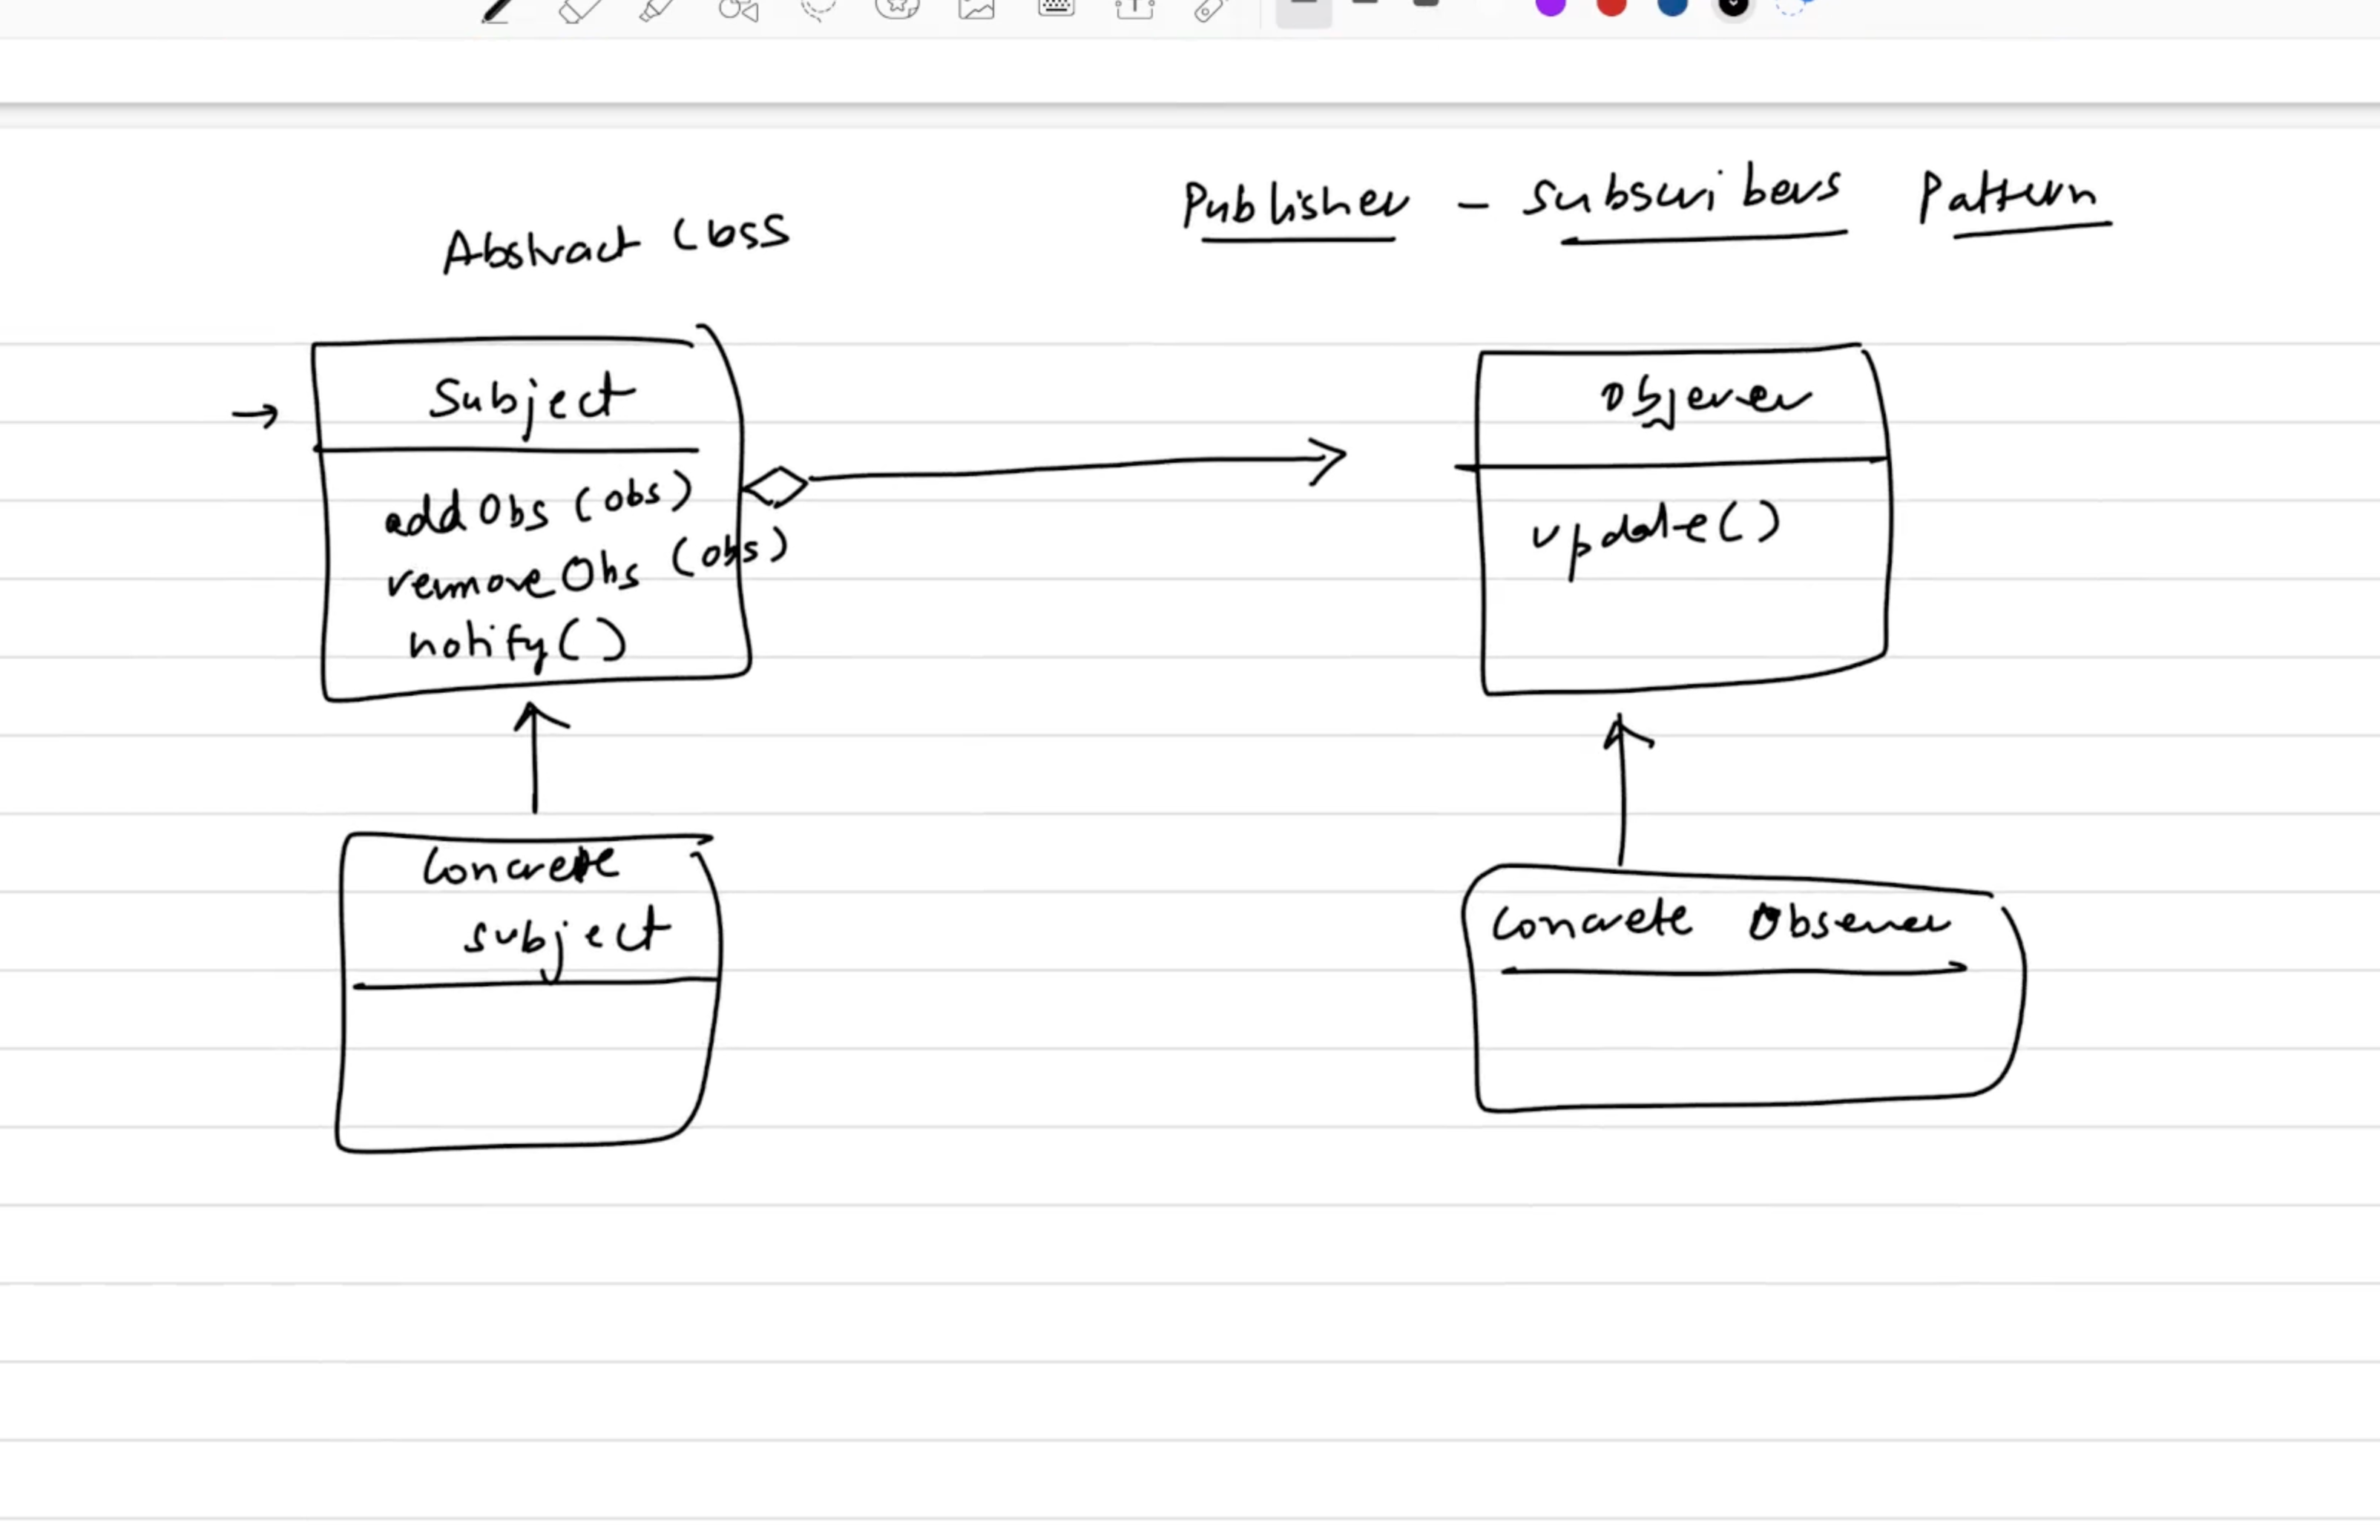 Publisher - Subscribers Pattern
Abstract Class
Subject
addObs (obs)
removeObs (obs)
notify()
Observer
update()
Concrete
subject
Concrete Observer